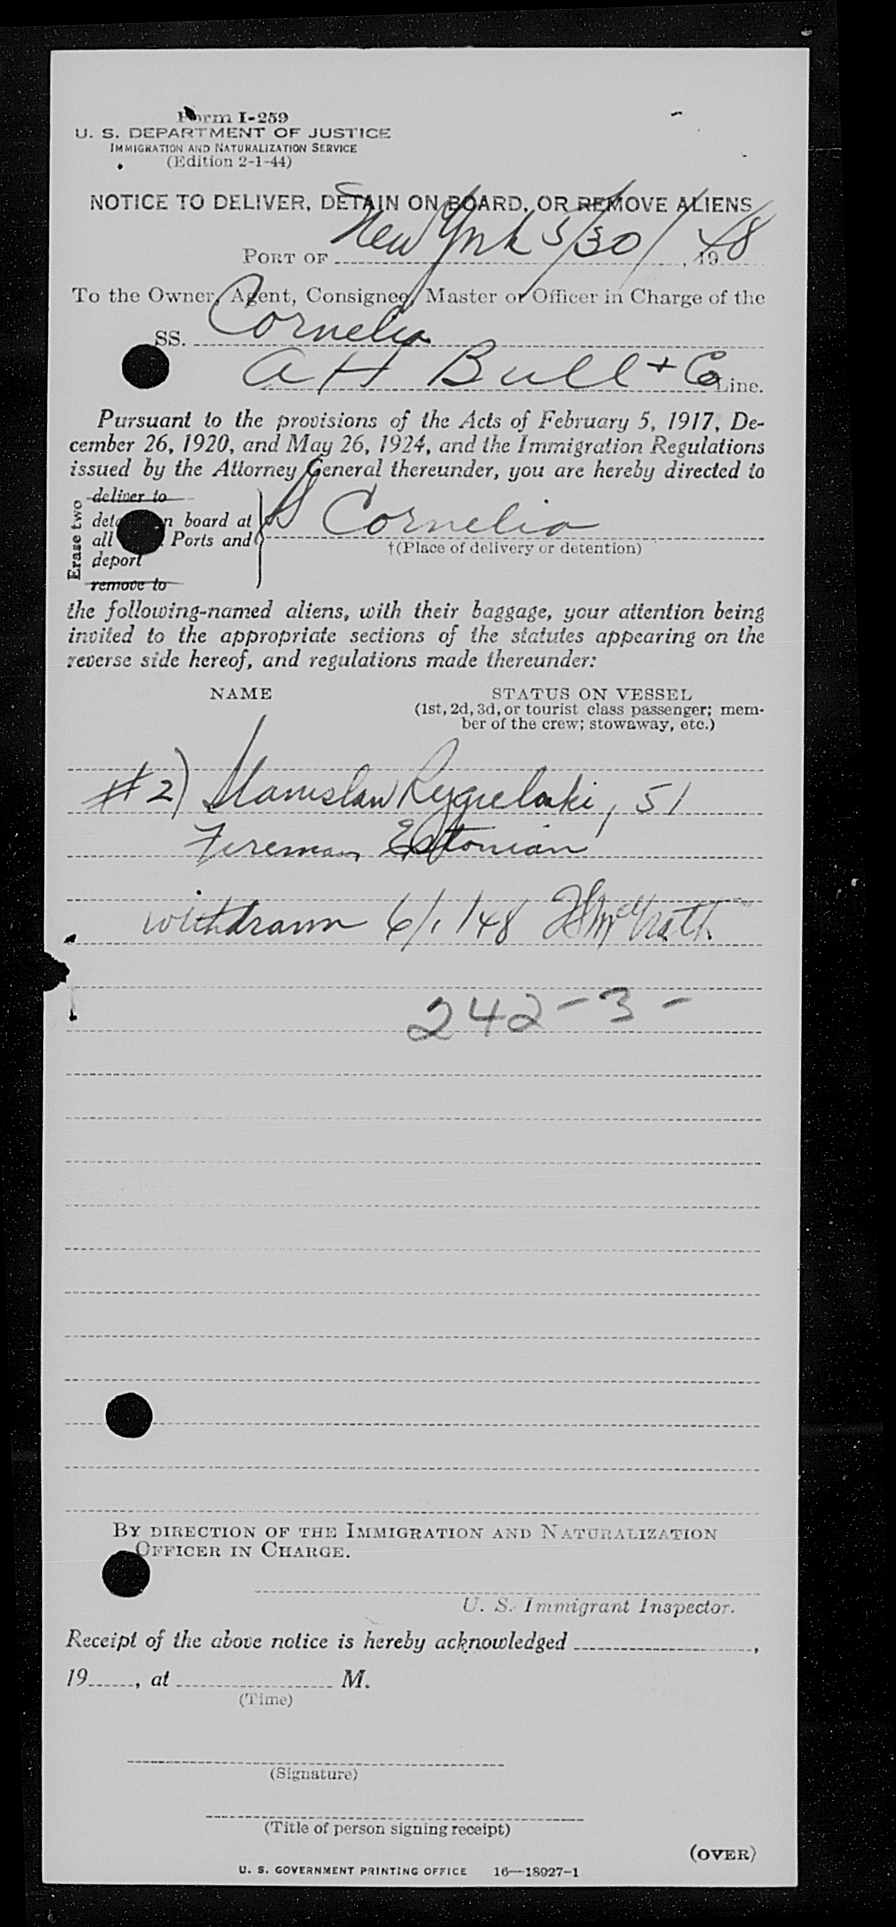 Form I-259
U. S. DEPARTMENT OF JUSTICE
IMMIGRATION AND NATURALIZATION SERVICE
(Edition 2-1-44)
NOTICE TO DELIVER, DETAIN ON BOARD, OR REMOVE ALIENS
PORT OF New York 5/30/, 1948
To the Owner, Agent, Consignee, Master or Officer in Charge of the
SS. Cornelia
A H Bull + Co Line.
Pursuant to the provisions of the Acts of February 5, 1917, De-
cember 26, 1920, and May 26, 1924, and the Immigration Regulations
issued by the Attorney General thereunder, you are hereby directed to
Erase two
deliver to
board at
all Ports and
deport
remove to
Cornelia
†(Place of delivery or detention)
the following-named aliens, with their baggage, your attention being
invited to the appropriate sections of the statutes appearing on the
reverse side hereof, and regulations made thereunder:
NAME STATUS ON VESSEL
(1st, 2d, 3d, or tourist class passenger; mem-
ber of the crew; stowaway, etc.)
#2) Stanislaw Rygielski, 51
Fireman, Estonian
withdrawn 6/1/48
242-3-
BY DIRECTION OF THE IMMIGRATION AND NATURALIZATION
OFFICER IN CHARGE.
U. S. Immigrant Inspector.
Receipt of the above notice is hereby acknowledged ,
19 , at M.
(Time)
(Signature)
(Title of person signing receipt)
(OVER)
U. S. GOVERNMENT PRINTING OFFICE 16—18927-1